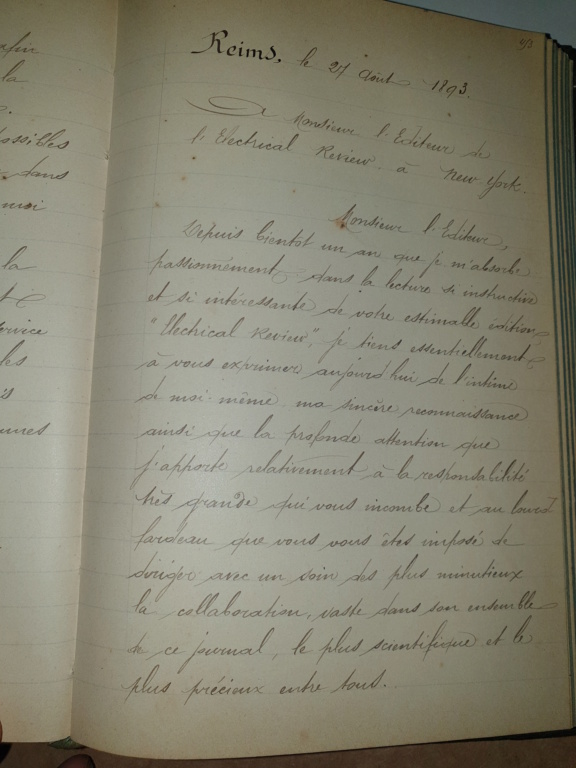 afin
la
possibles
dans
moi
la
et
service
les
is
413
Reims, le 27 Août 1893.
A Monsieur l'Editeur de
l'Electrical Review. à New York.
Monsieur l'Editeur,
Depuis bientôt un an que je m'absorbe
passionnément dans la lecture si instructive
et si intéressante de votre estimable édition
"Electrical Review", je tiens essentiellement
à vous exprimer aujourd'hui de l'intime
de moi-même ma sincère reconnaissance
ainsi que la profonde attention que
j'apporte relativement à la responsabilité
très grande qui vous incombe et au lourd
fardeau que vous vous êtes imposé de
diriger avec un soin des plus minutieux
la collaboration, vaste dans son ensemble
de ce journal, le plus scientifique et le
plus précieux entre tous.